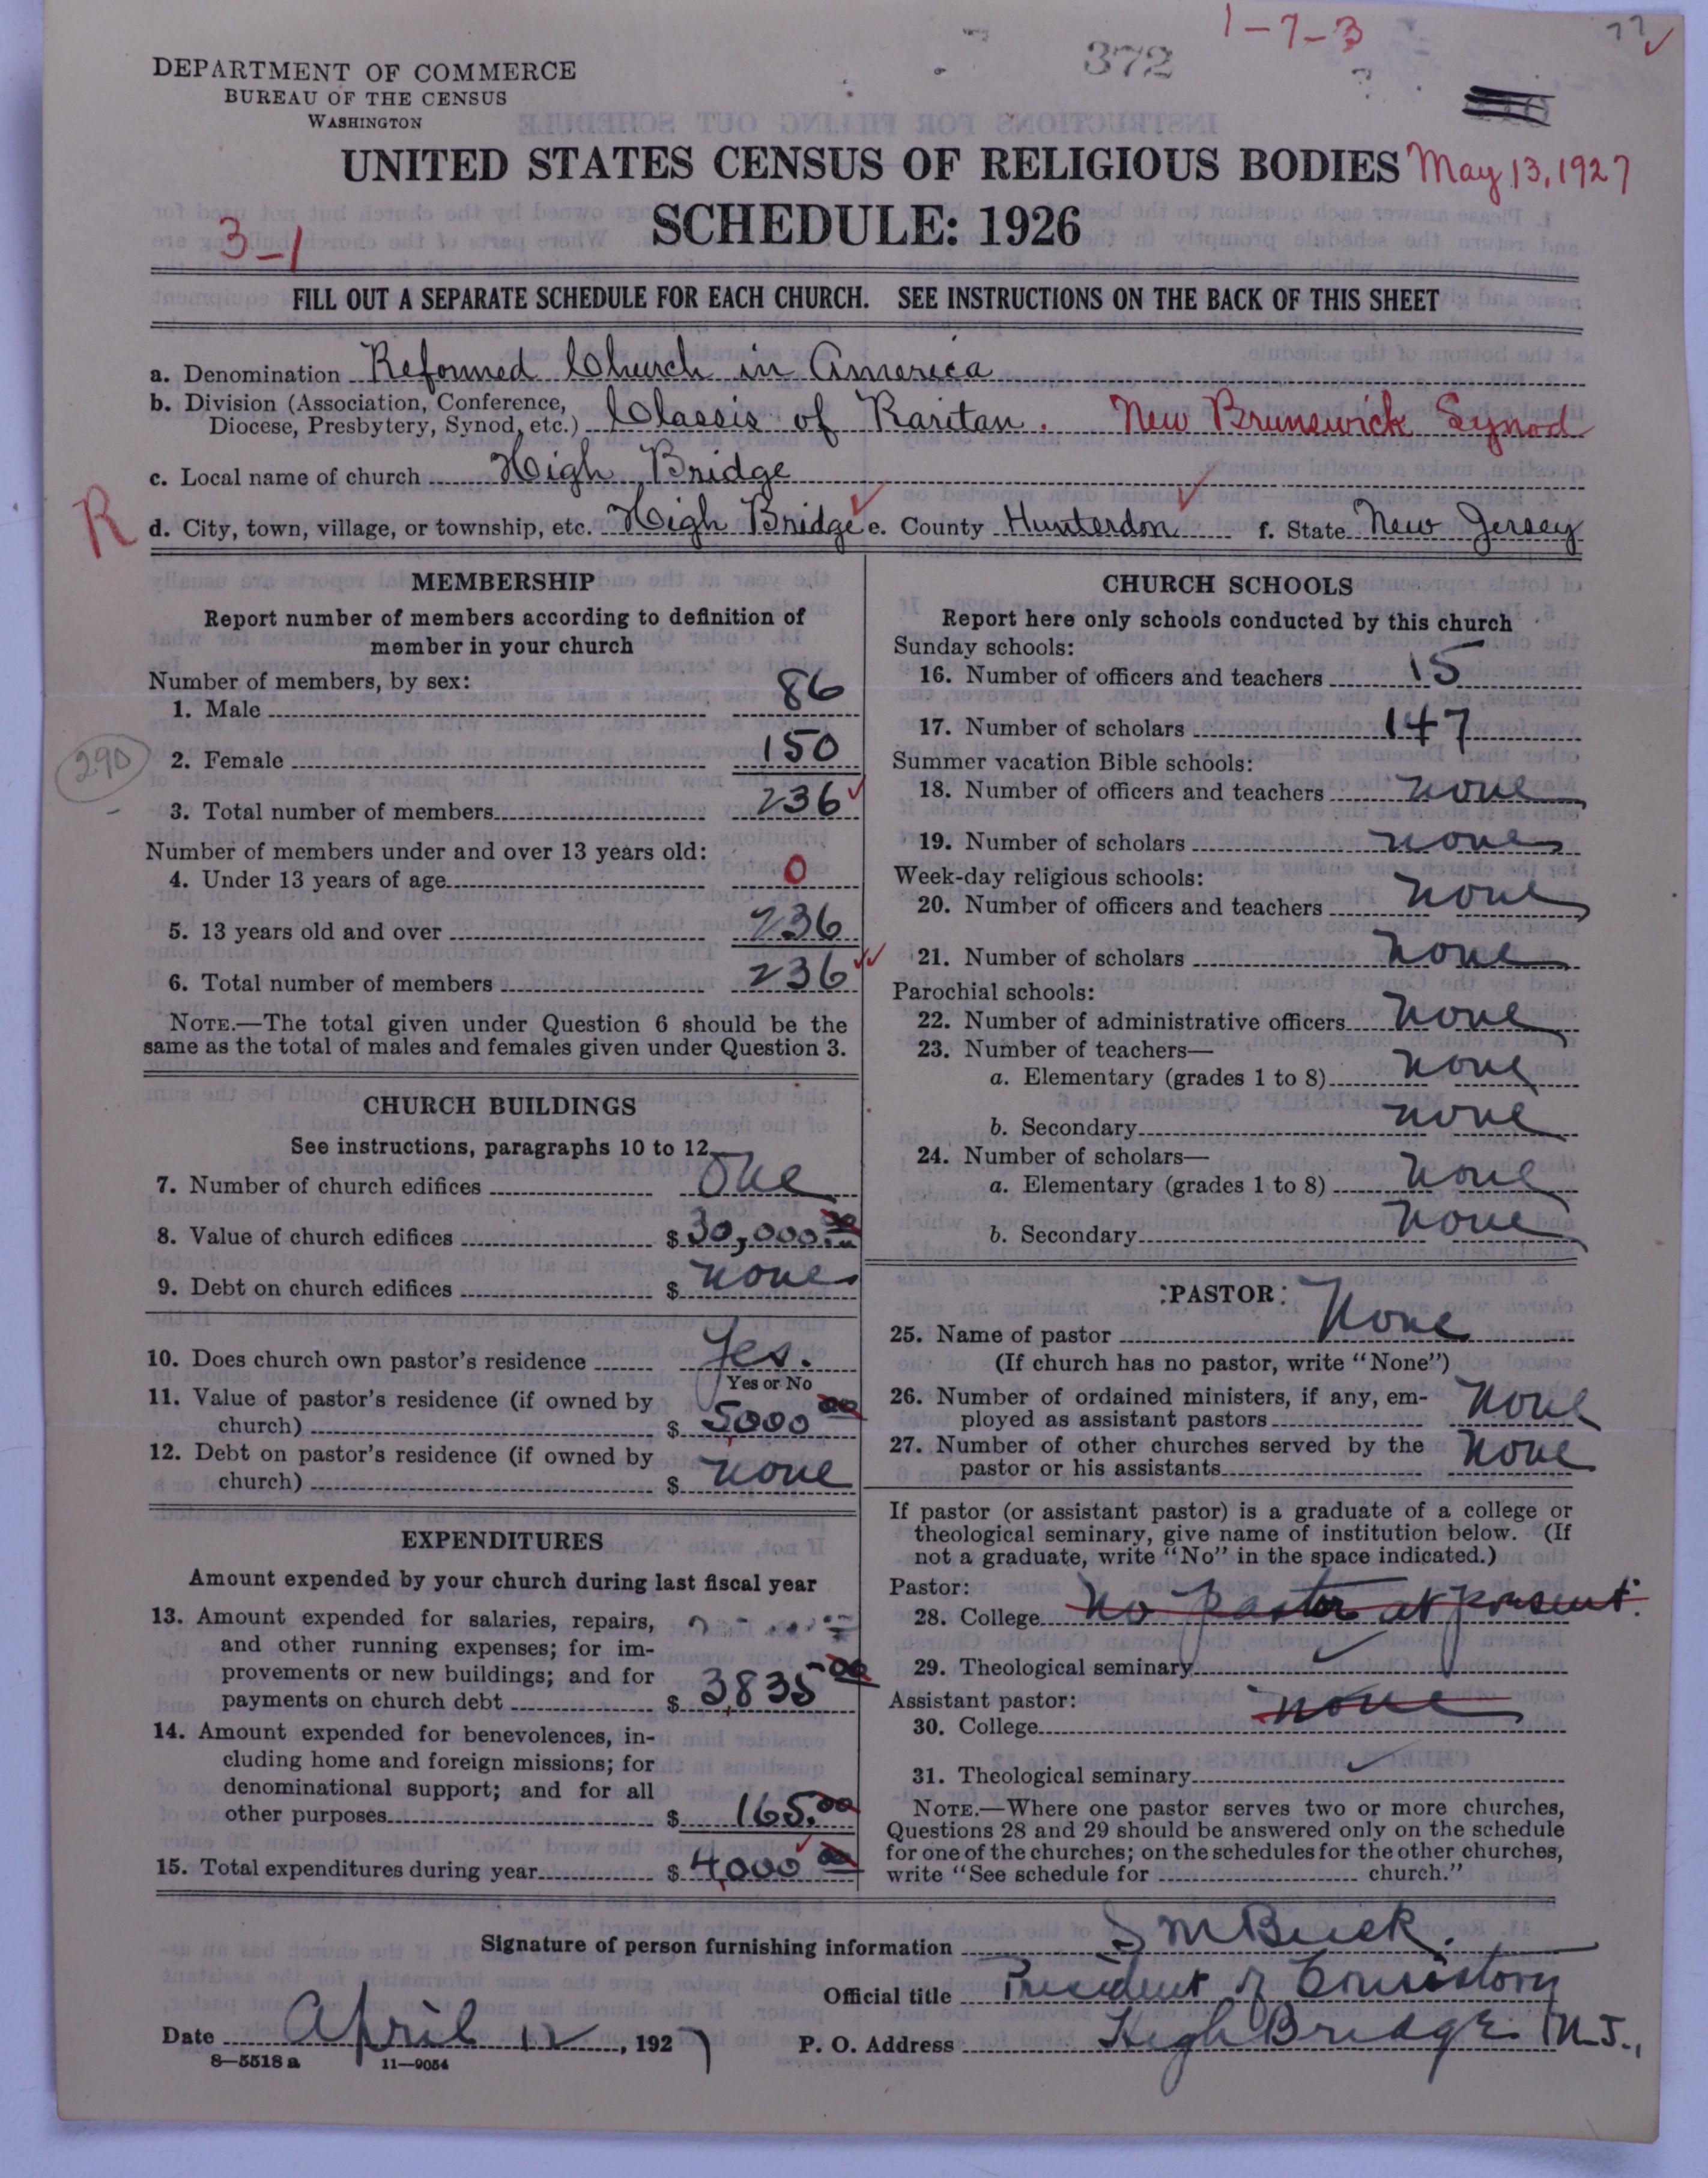 1-7-3
372
77
DEPARTMENT OF COMMERCE
BUREAU OF THE CENSUS
WASHINGTON
UNITED STATES CENSUS OF RELIGIOUS BODIES May 13, 1927
SCHEDULE: 1926
3-1
FILL OUT A SEPARATE SCHEDULE FOR EACH CHURCH. SEE INSTRUCTIONS ON THE BACK OF THIS SHEET
a. Denomination Reformed Church in America
b. Division (Association, Conference,
Diocese, Presbytery, Synod, etc.) Classis of Raritan. New Brunswick Synod
c. Local name of church High Bridge
R
d. City, town, village, or township, etc. High Bridge e. County Hunterdon f. State New Jersey
MEMBERSHIP
Report number of members according to definition of
member in your church
Number of members, by sex:
1. Male 86
2. Female 150
290
3. Total number of members 236
Number of members under and over 13 years old:
4. Under 13 years of age 0
5. 13 years old and over 236
6. Total number of members 236
NOTE.—The total given under Question 6 should be the
same as the total of males and females given under Question 3.
CHURCH BUILDINGS
See instructions, paragraphs 10 to 12
7. Number of church edifices One
8. Value of church edifices $ 30,000.00
9. Debt on church edifices $ none
10. Does church own pastor's residence Yes.
Yes or No
11. Value of pastor's residence (if owned by
church) $ 5000 00
12. Debt on pastor's residence (if owned by
church) $ none
EXPENDITURES
Amount expended by your church during last fiscal year
13. Amount expended for salaries, repairs,
and other running expenses; for im-
provements or new buildings; and for
payments on church debt $ 3835 00
14. Amount expended for benevolences, in-
cluding home and foreign missions; for
denominational support; and for all
other purposes $ 165.00
15. Total expenditures during year $ 4000 00
CHURCH SCHOOLS
Report here only schools conducted by this church
Sunday schools:
16. Number of officers and teachers 15
17. Number of scholars 147
Summer vacation Bible schools:
18. Number of officers and teachers none
19. Number of scholars none
Week-day religious schools:
20. Number of officers and teachers none
21. Number of scholars none
Parochial schools:
22. Number of administrative officers none
23. Number of teachers—
a. Elementary (grades 1 to 8) none
b. Secondary none
24. Number of scholars—
a. Elementary (grades 1 to 8) none
b. Secondary none
PASTOR
25. Name of pastor None
(If church has no pastor, write "None")
26. Number of ordained ministers, if any, em-
ployed as assistant pastors None
27. Number of other churches served by the
pastor or his assistants None
If pastor (or assistant pastor) is a graduate of a college or
theological seminary, give name of institution below. (If
not a graduate, write "No" in the space indicated.)
Pastor:
28. College No pastor at present.
29. Theological seminary
Assistant pastor:
30. College none
31. Theological seminary
NOTE.—Where one pastor serves two or more churches,
Questions 28 and 29 should be answered only on the schedule
for one of the churches; on the schedules for the other churches,
write "See schedule for church."
Signature of person furnishing information S M Buck.
Official title President of Consistory
Date April 12, 1927 P. O. Address High Bridge N.J.,
8—5518 a 11—9054